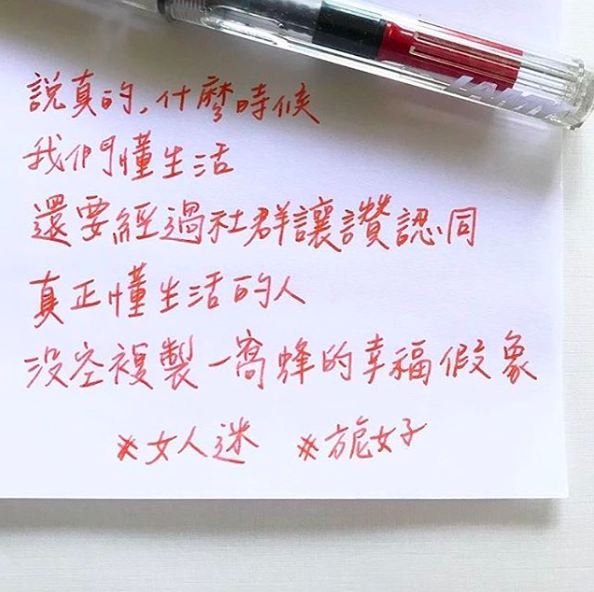 說真的,什麼時候
我們懂生活
還要經過社群讓讚認同
真正懂生活的人
沒空複製一窩蜂的幸福假象
#女人迷 #女子